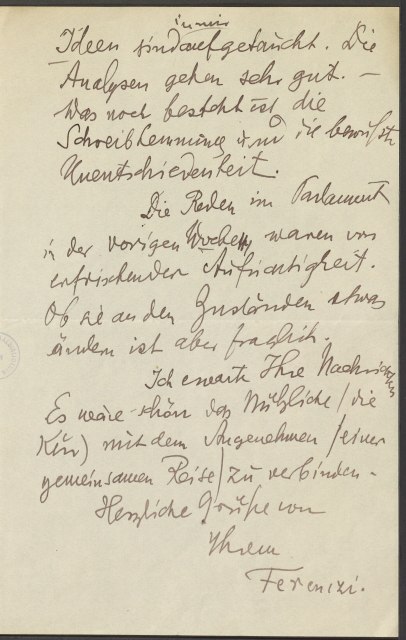 in mir
Ideen sind aufgetaucht. Die
Analysen gehen sehr gut. –
Was noch besteht ist die
Schreibhemmung und die bewußte
Unentschiedenheit.
Die Reden im Parlament
in der vorigen Woche waren von
erfrischender Aufrichtigkeit.
Ob sie an den Zuständen etwas
ändern ist aber fraglich.
Ich erwarte Ihre Nachrichten
Es wäre schön das Nützliche (die
Kur) mit dem Angenehmen (einer
gemeinsamen Reise) zu verbinden –
Herzliche Grüße von
Ihrem
Ferenczi.